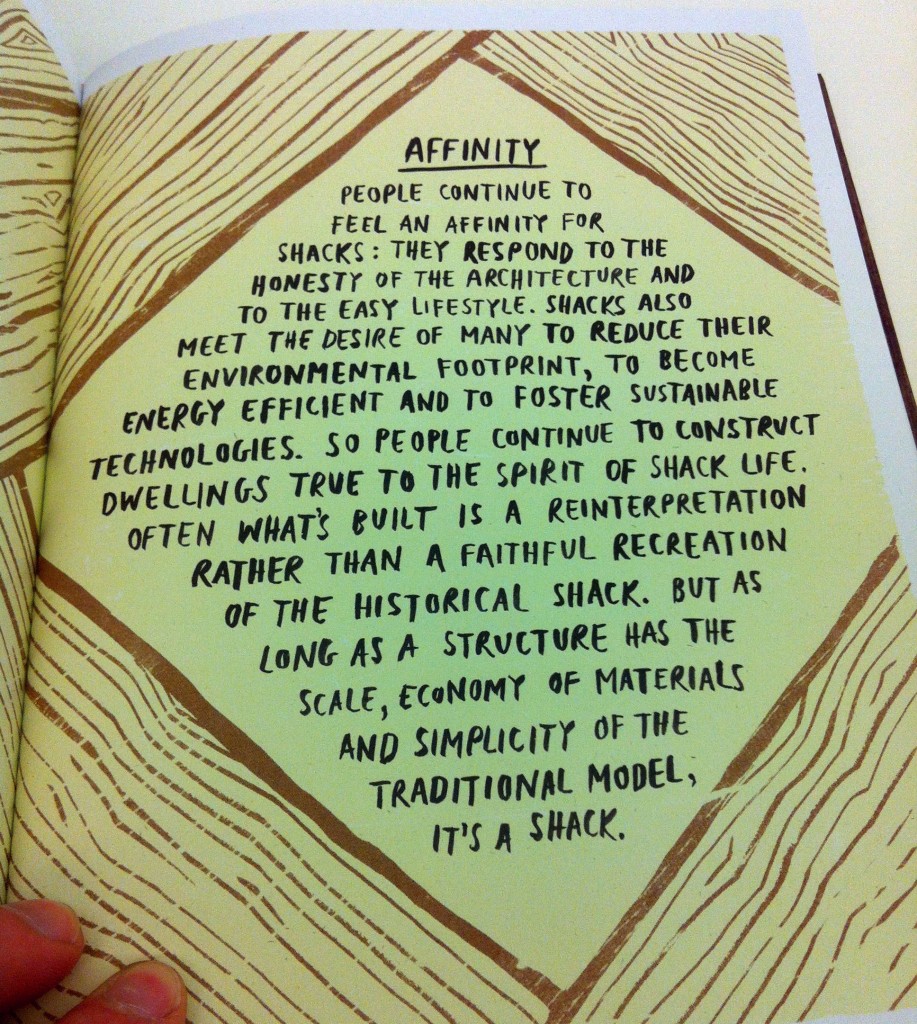 AFFINITY
PEOPLE CONTINUE TO
FEEL AN AFFINITY FOR
SHACKS: THEY RESPOND TO THE
HONESTY OF THE ARCHITECTURE AND
TO THE EASY LIFESTYLE. SHACKS ALSO
MEET THE DESIRE OF MANY TO REDUCE THEIR
ENVIRONMENTAL FOOTPRINT, TO BECOME
ENERGY EFFICIENT AND TO FOSTER SUSTAINABLE
TECHNOLOGIES. SO PEOPLE CONTINUE TO CONSTRUCT
DWELLINGS TRUE TO THE SPIRIT OF SHACK LIFE.
OFTEN WHAT'S BUILT IS A REINTERPRETATION
RATHER THAN A FAITHFUL RECREATION
OF THE HISTORICAL SHACK. BUT AS
LONG AS A STRUCTURE HAS THE
SCALE, ECONOMY OF MATERIALS
AND SIMPLICITY OF THE
TRADITIONAL MODEL,
IT'S A SHACK.